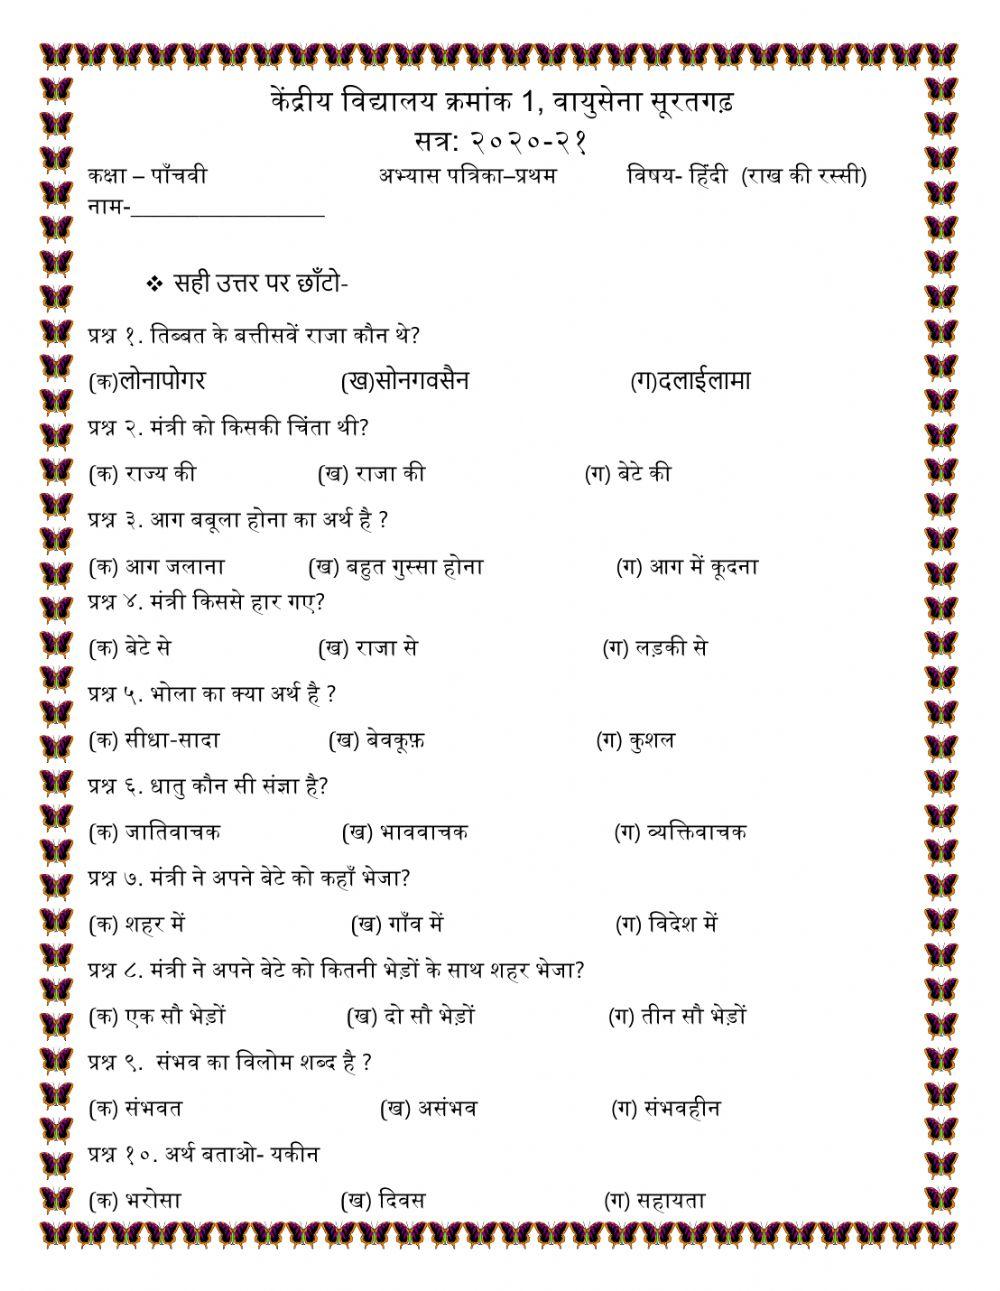 केंद्रीय विद्यालय क्रमांक 1, वायुसेना सूरतगढ़
सत्र: २०२०-२१
कक्षा – पाँचवी अभ्यास पत्रिका–प्रथम विषय- हिंदी (राख की रस्सी)
नाम-________________
❖ सही उत्तर पर छाँटो-
प्रश्न १. तिब्बत के बत्तीसवें राजा कौन थे?
(क)लोनापोगर (ख)सोनगवसैन (ग)दलाईलामा
प्रश्न २. मंत्री को किसकी चिंता थी?
(क) राज्य की (ख) राजा की (ग) बेटे की
प्रश्न ३. आग बबूला होना का अर्थ है ?
(क) आग जलाना (ख) बहुत गुस्सा होना (ग) आग में कूदना
प्रश्न ४. मंत्री किससे हार गए?
(क) बेटे से (ख) राजा से (ग) लड़की से
प्रश्न ५. भोला का क्या अर्थ है ?
(क) सीधा-सादा (ख) बेवकूफ़ (ग) कुशल
प्रश्न ६. धातु कौन सी संज्ञा है?
(क) जातिवाचक (ख) भाववाचक (ग) व्यक्तिवाचक
प्रश्न ७. मंत्री ने अपने बेटे को कहाँ भेजा?
(क) शहर में (ख) गाँव में (ग) विदेश में
प्रश्न ८. मंत्री ने अपने बेटे को कितनी भेड़ों के साथ शहर भेजा?
(क) एक सौ भेड़ों (ख) दो सौ भेड़ों (ग) तीन सौ भेड़ों
प्रश्न ९. संभव का विलोम शब्द है ?
(क) संभवत (ख) असंभव (ग) संभवहीन
प्रश्न १०. अर्थ बताओ- यकीन
(क) भरोसा (ख) दिवस (ग) सहायता